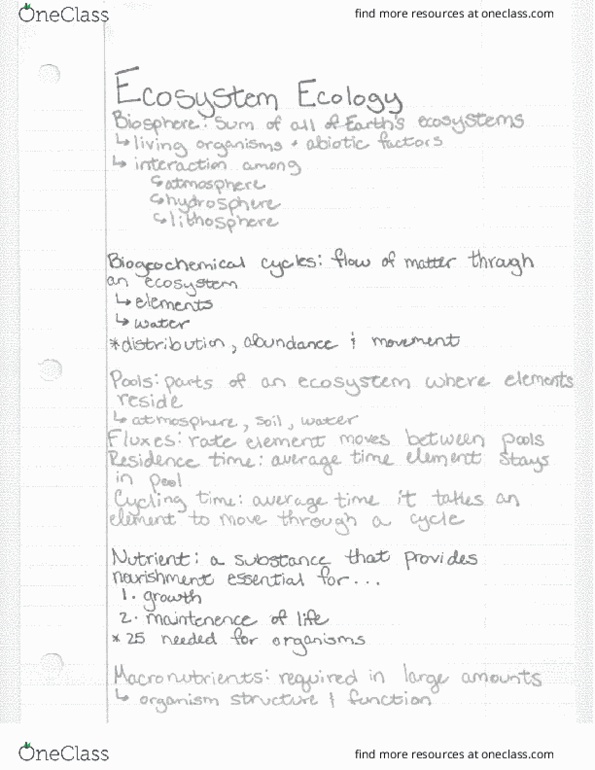 OneClass
find more resources at oneclass.com
Ecosystem Ecology
Biosphere: Sum of all of Earth's ecosystems
↳ living organisms + abiotic factors
↳ interaction among
↳ atmosphere
↳ hydrosphere
↳ lithosphere
Biogeochemical cycles: flow of matter through
an ecosystem
↳ elements
↳ water
*distribution, abundance & movement
Pools: parts of an ecosystem where elements
reside
↳ atmosphere, soil, water
Fluxes: rate element moves between pools
Residence time: average time element stays
in pool
Cycling time: average time it takes an
element to move through a cycle
Nutrient: a substance that provides
nourishment essential for...
1. growth
2. maintenence of life
* 25 needed for organisms
Macronutrients: required in large amounts
↳ organism structure & function
OneClass
find more resources at oneclass.com